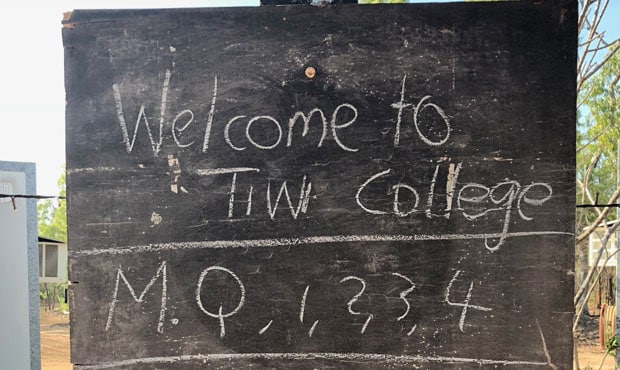 Welcome to
TIWI College
M.Q, 1, 2, 3, 4